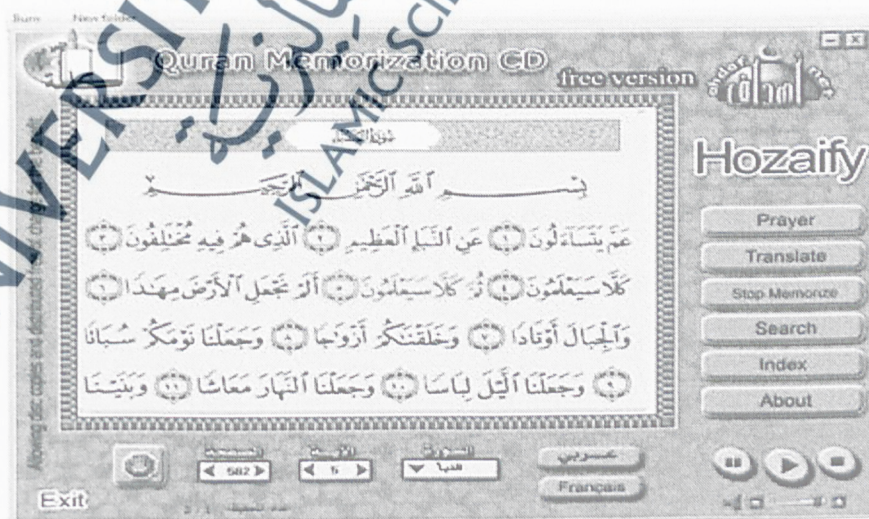 Burn New folder
Quran Memorization CD
free version
ahdaf net
أهداف
Hozaify
بِسْمِ ٱللَّهِ ٱلرَّحْمَٰنِ ٱلرَّحِيمِ
عَمَّ يَتَسَآءَلُونَ ١ عَنِ ٱلنَّبَإِ ٱلْعَظِيمِ ٢ ٱلَّذِى هُمْ فِيهِ مُخْتَلِفُونَ ٣
كَلَّا سَيَعْلَمُونَ ٤ ثُمَّ كَلَّا سَيَعْلَمُونَ ٥ أَلَمْ نَجْعَلِ ٱلْأَرْضَ مِهَٰدًا ٦
وَٱلْجِبَالَ أَوْتَادًا ٧ وَخَلَقْنَٰكُمْ أَزْوَٰجًا ٨ وَجَعَلْنَا نَوْمَكُمْ سُبَاتًا
٩ وَجَعَلْنَا ٱلَّيْلَ لِبَاسًا ١٠ وَجَعَلْنَا ٱلنَّهَارَ مَعَاشًا ١١ وَبَنَيْنَا
Prayer
Translate
Stop Memorize
Search
Index
About
الصفحة الآية السورة
582 5
عربي
Français
Exit
Allowing disc copies and distributes
ISLAMIC SCI